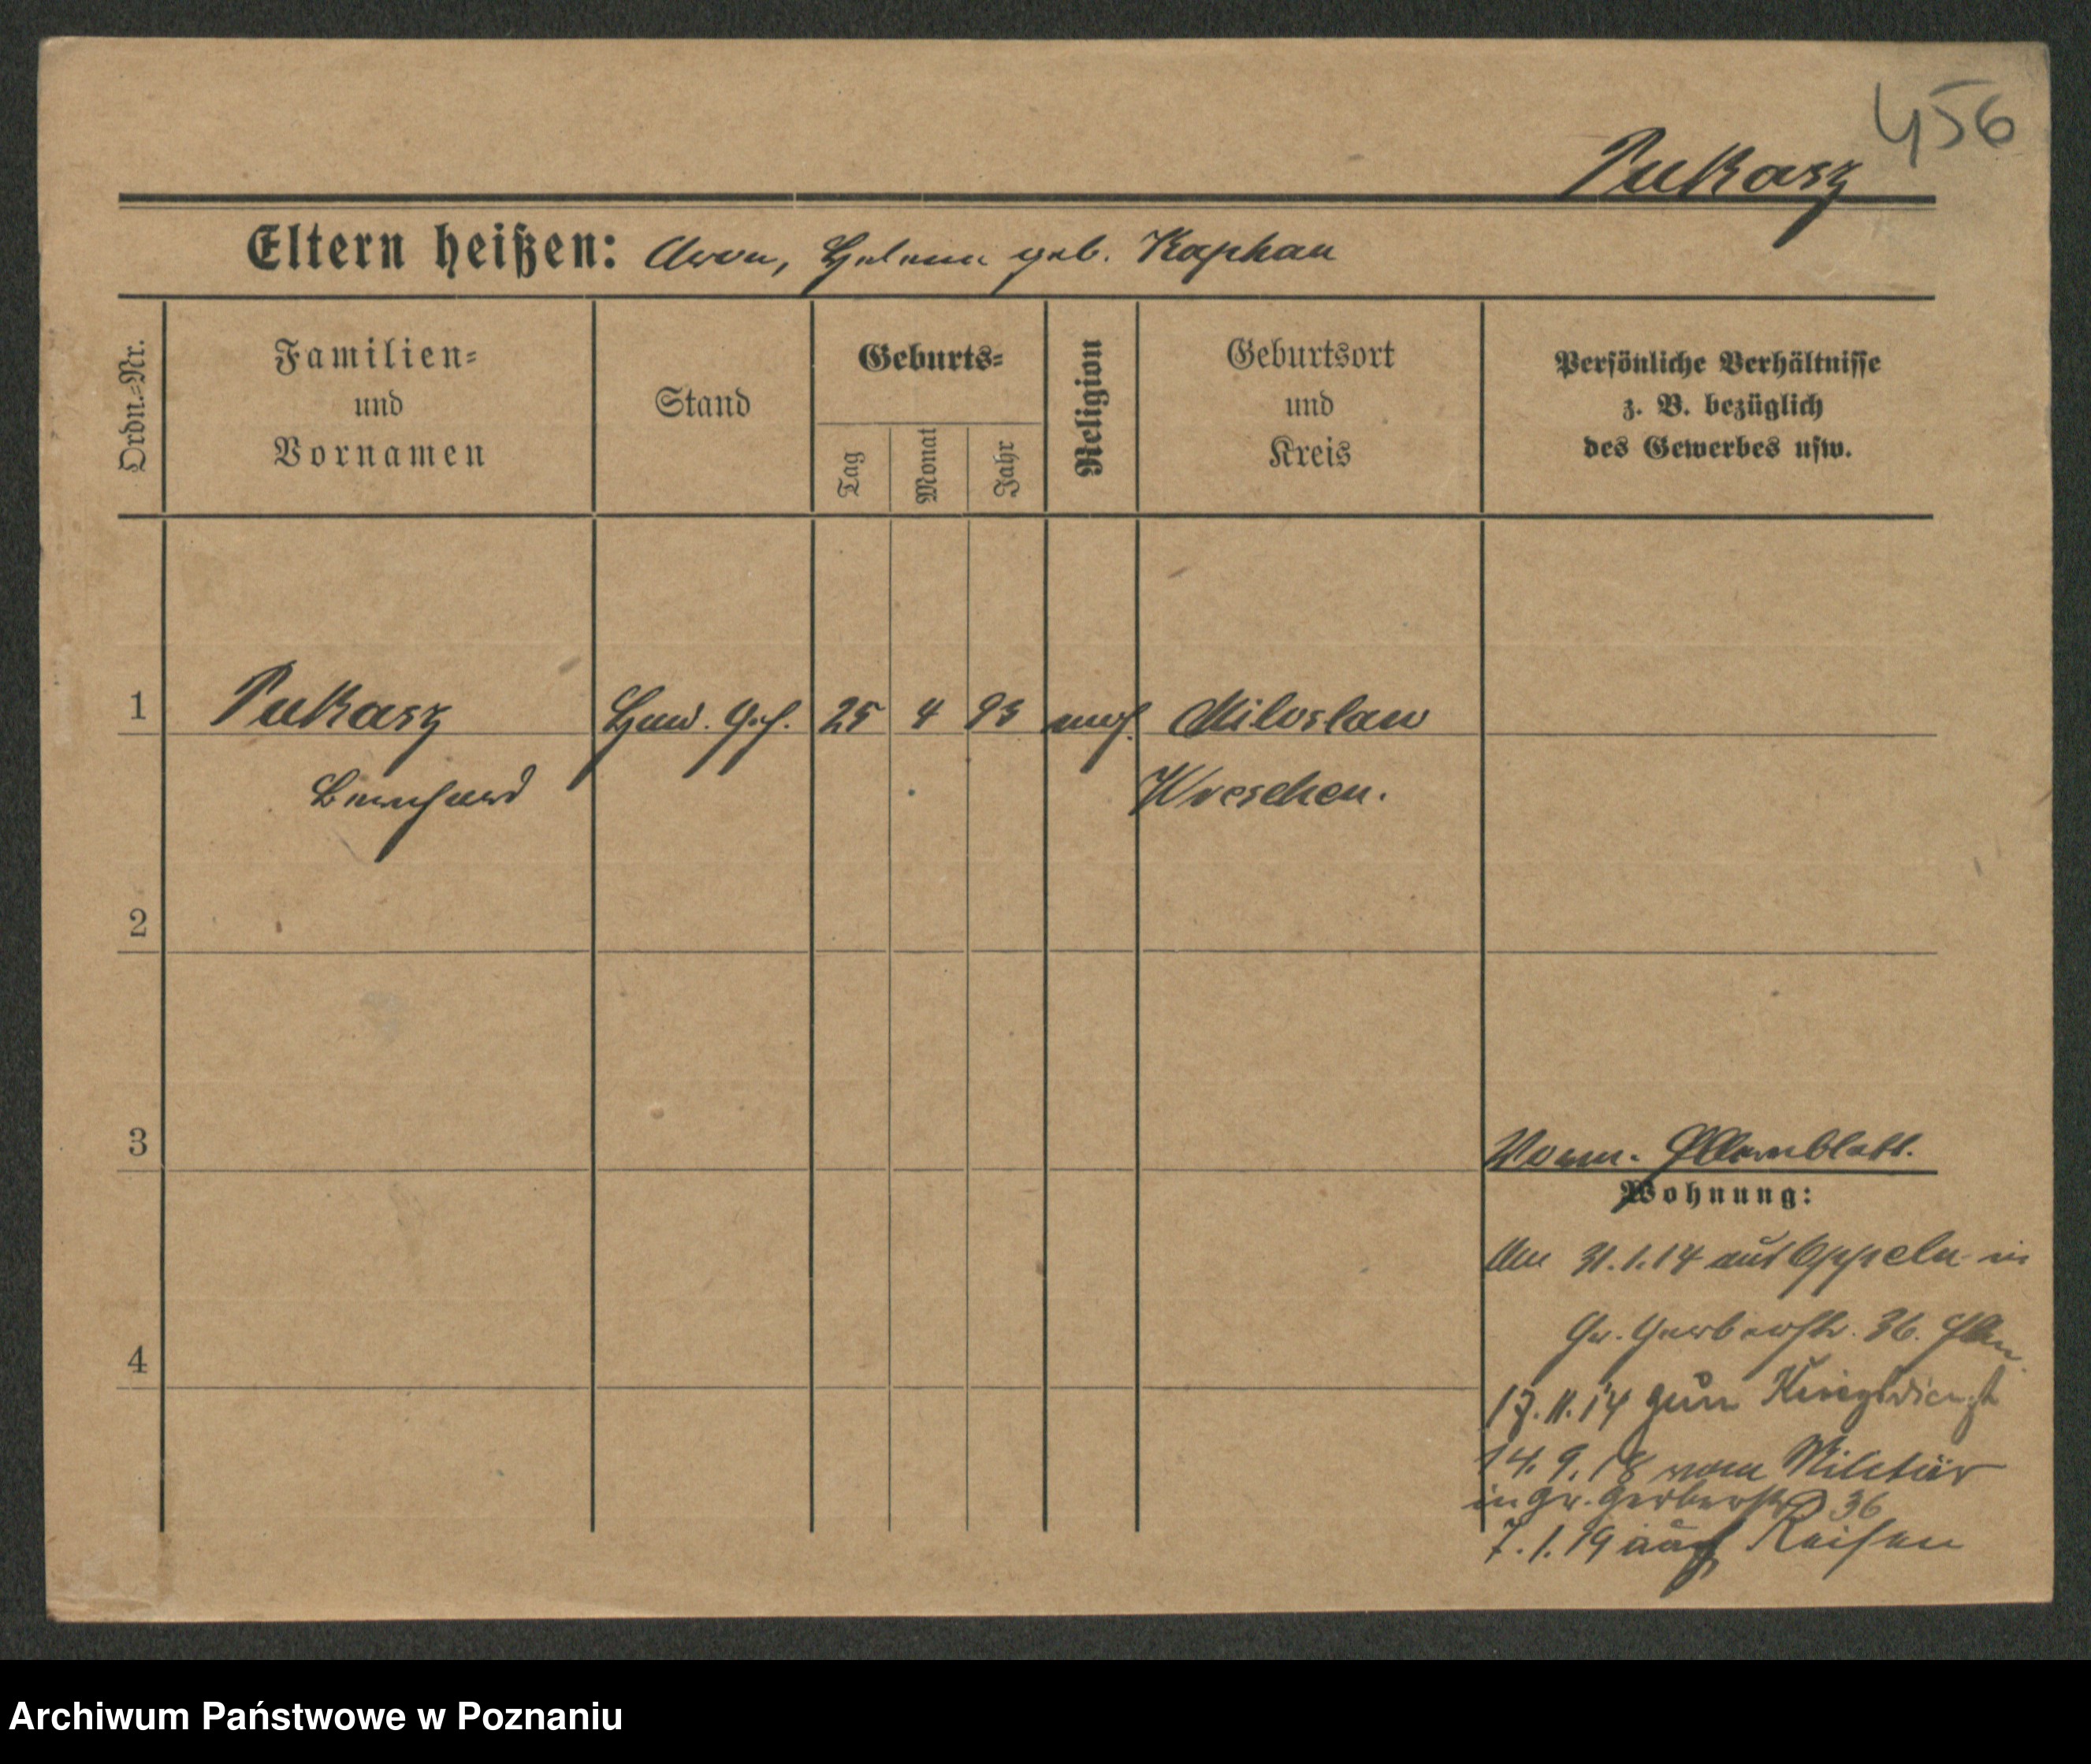 456
Pukasz
Eltern heißen: Aron, Helena geb. Kaphan
Ordn.=Nr.
Familien=
und
Vornamen
Stand
Geburts=
Tag
Monat
Jahr
Religion
Geburtsort
und
Kreis
Persönliche Verhältnisse
z. B. bezüglich
des Gewerbes usw.
1 Pukasz 25 4 93 mos. Miloslaw
Bernhard Wreschen.
2
3
Wohnung:
4
31.1.14 aus Oppeln in
Gr. Gerberstr. 36.
17.11.14 zum Kriegsdienst
14.9.18 vom Militär
in Gr. Gerberstr 36
7.1.19 auf Reisen
Archiwum Państwowe w Poznaniu